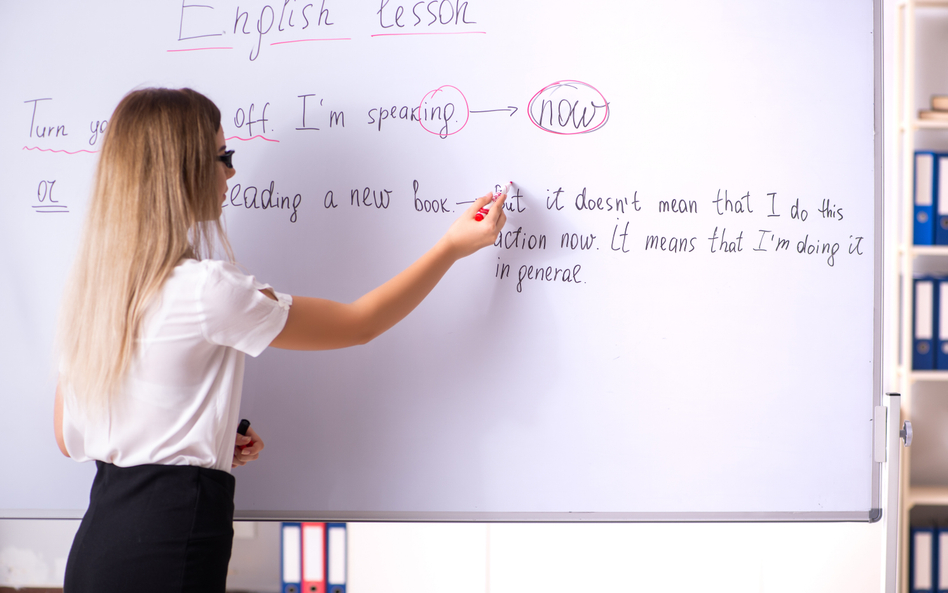 English lesson
Turn off. I'm speaking. → now
or a new book. — it doesn't mean that I do this
action now. It means that I'm doing it
in general.